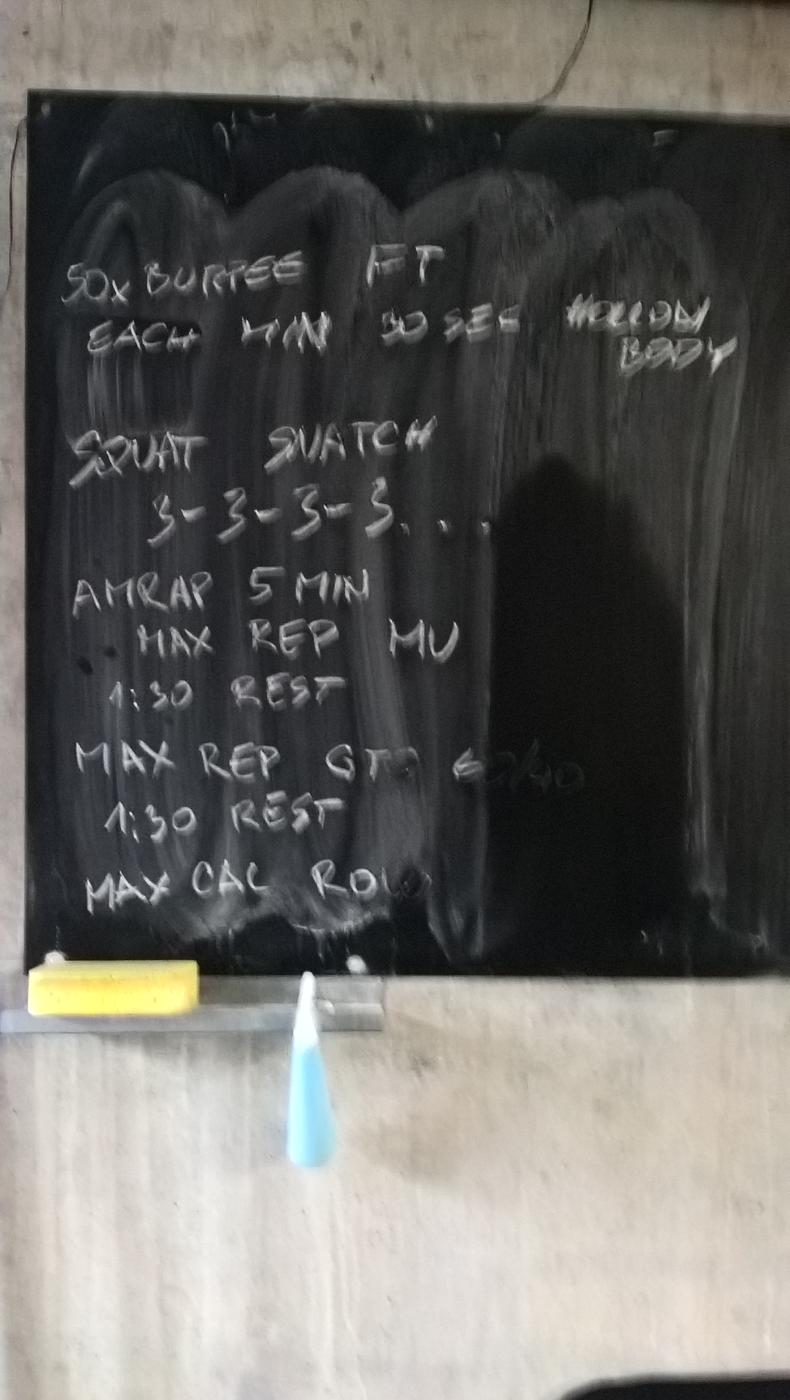 50x BURPEE FT
EACH MIN 30 SEC HOLLOW
BODY
SQUAT SNATCH
3-3-3-3...
AMRAP 5 MIN
MAX REP MU
1:30 REST
MAX REP GTO 60/40
1:30 REST
MAX CAL ROW